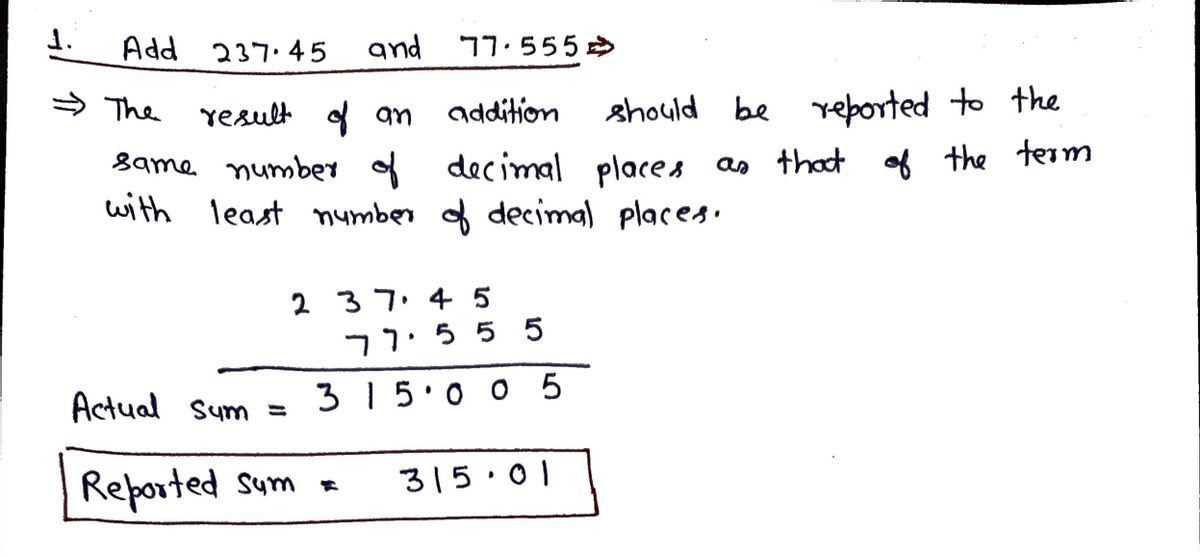 1. Add 237.45 and 77.555 ⇒
⇒ The result of an addition should be reported to the
same number of decimal places as that of the term
with least number of decimal places.
237.45
77.555
Actual sum = 315.005
Reported sum = 315.01